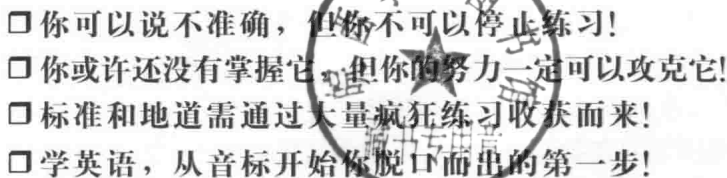 □你可以说不准确，但你不可以停止练习!
□你或许还没有掌握它，但你的努力一定可以攻克它!
□标准和地道需通过大量疯狂练习收获而来!
□学英语，从音标开始你脱口而出的第一步!